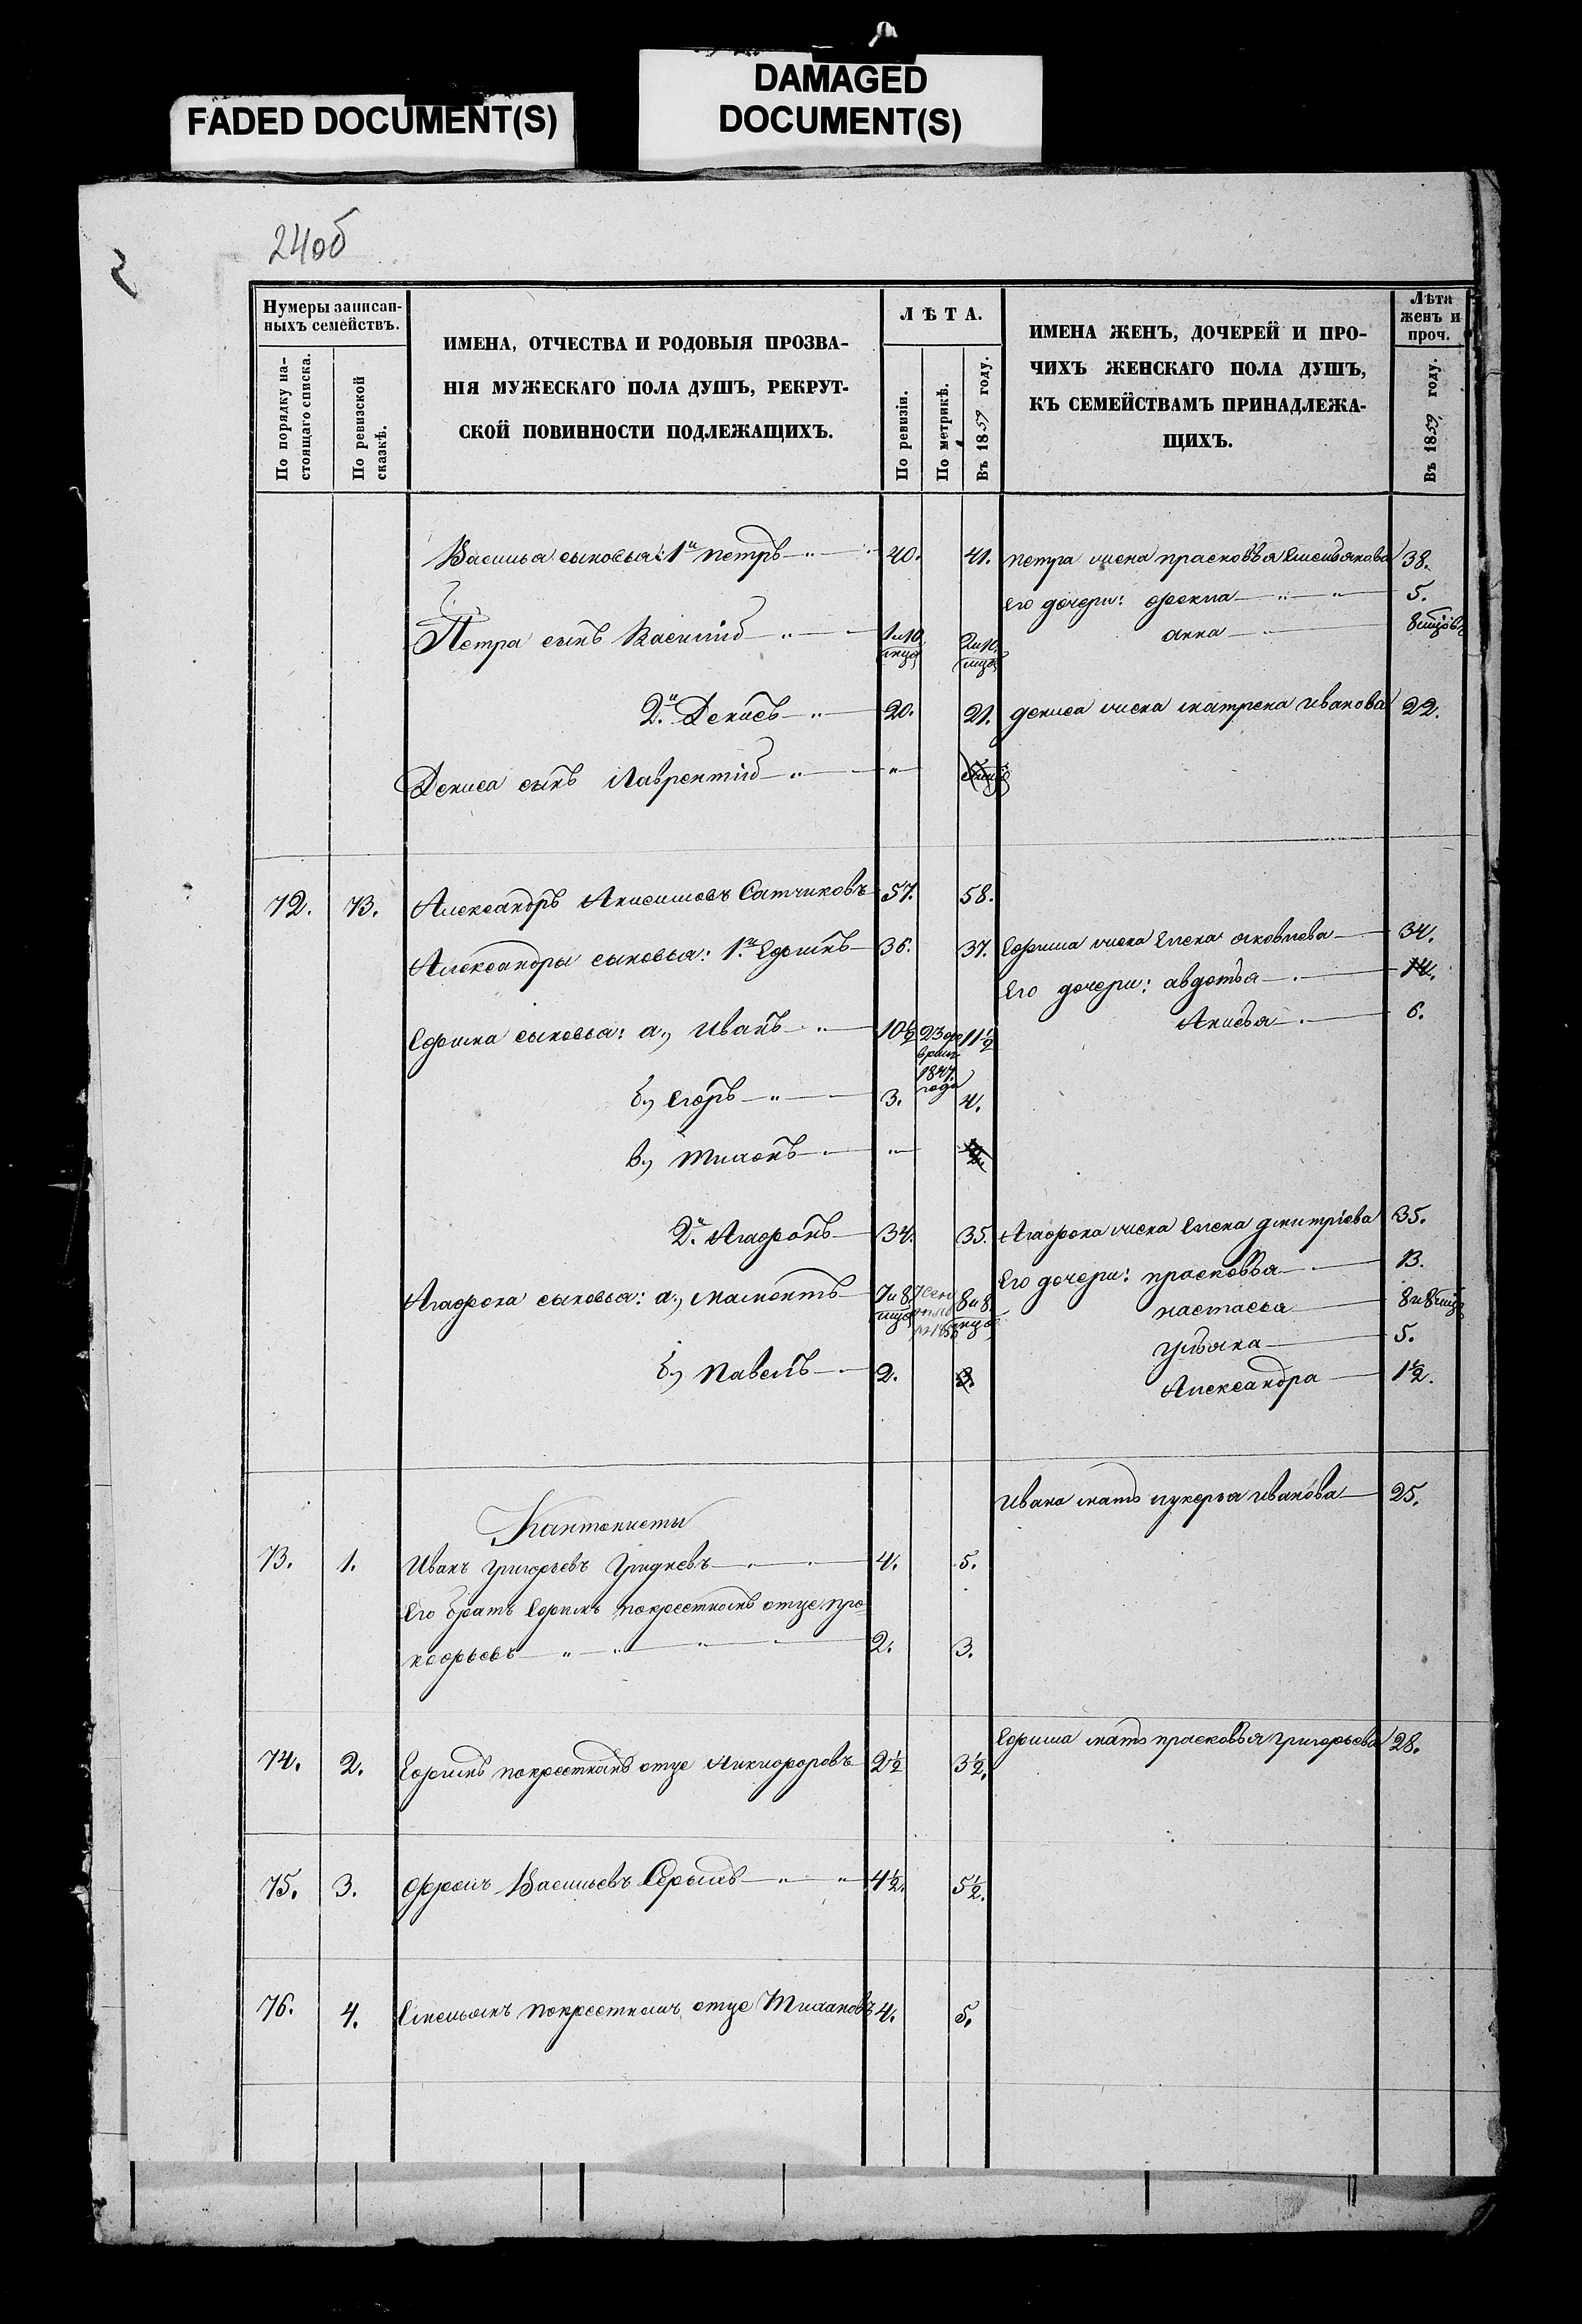 FADED DOCUMENT(S)
DAMAGED
DOCUMENT(S)
24об
Нумеры записан-
ныхъ семействъ.
По порядку на-
стоящаго списка.
По ревизской
сказкѣ.
ИМЕНА, ОТЧЕСТВА И РОДОВЫЯ ПРОЗВА-
НІЯ МУЖЕСКАГО ПОЛА ДУШЪ, РЕКРУТ-
СКОЙ ПОВИННОСТИ ПОДЛЕЖАЩИХЪ.
ЛѢТА.
По ревизіи.
По метрикѣ.
Въ 1859 году.
ИМЕНА ЖЕНЪ, ДОЧЕРЕЙ И ПРО-
ЧИХЪ ЖЕНСКАГО ПОЛА ДУШЪ,
КЪ СЕМЕЙСТВАМЪ ПРИНАДЛЕЖА-
ЩИХЪ.
Лѣта
женъ и
проч.
Въ 1859 году.
Василья сыновья: 1й петръ 40. 41. петра жена прасковья Емельянова 38.
Его дочери: фекла 5.
Петра сынъ Василій 1 и 10 мцов 2 и 10 мцов анна 8 мцовъ
2й Денисъ 20. 21. дениса жена матрена иванова 22.
Дениса сынъ Лаврентій
72. 73. Александръ Анисимовъ Сатчиковъ 57. 58.
Александры сыновья: 1й Ефимъ 36. 37. Ефима жена Елена яковлева 34.
Его дочери: авдотья 14.
Анисья 6.
Ефима сыновья: а., Иванъ 10½ 23 фе
враля
1847
года 11½
б., Егоръ 3. 4.
в., Тихонъ
2й Агафонъ 34. 35. Агафона жена Елена дмитріева 35.
Его дочери: прасковья 13.
Агафона сыновья: а., мамонтъ 7 и 8 мцов 8 и 8 мцов настасья 8 и 8 мцов
ульяна 5.
б., Павелъ 2. 3. Александра 1½.
Кантонисты
Ивана мать лукерья иванова 25.
73. 1. Иванъ григорьевъ Гридневъ 4. 5.
Его братъ Ефимъ покрестному отцу про-
кофьевъ 2. 3.
74. 2. Ефимъ покрестному отцу Никифоровъ 2½ 3½. Ефима мать прасковья григорьева 28.
75. 3. Фролъ Васильевъ 4½. 5½.
76. 4. Емельянъ покрестному отцу Тихановъ 4. 5.